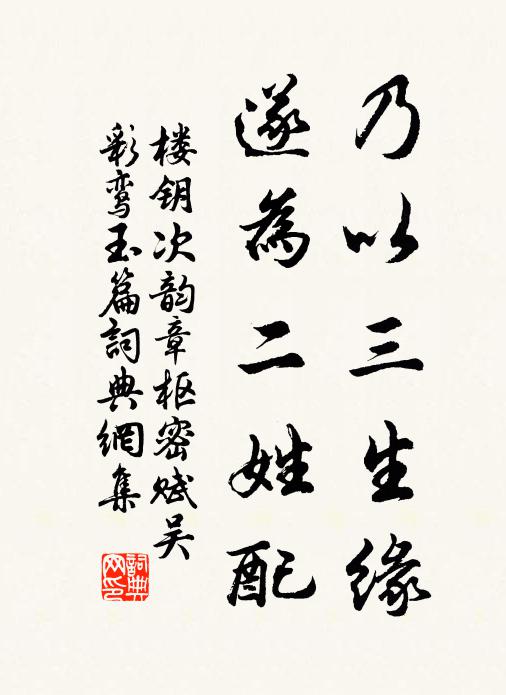 乃以三生缘
遂為二姓配
楼钥次韵章枢密赋吴
彩鸾玉篇詞典網集
詞典
网印